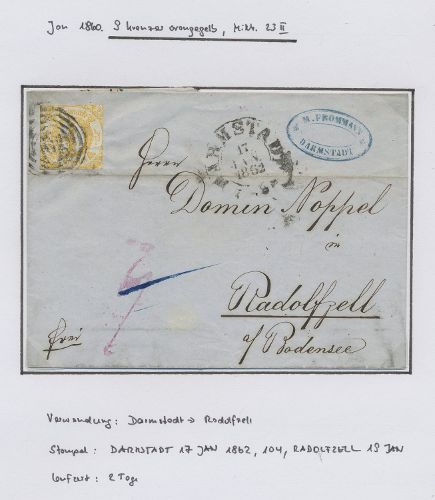 Jan 1860. 9 Kreuzer orangegelb, Mi Nr. 23 II
DARMSTADT
17
JAN
1862
M. FROMMANN
DARMSTADT
Herrn
Domin Noppel
in
Radolfzell
a/ Bodensee
frei
Verwendung: Darmstadt → Radolfzell
Stempel: DARMSTADT 17 JAN 1862, 104, RADOLFZELL 19 JAN
Laufzeit: 2 Tage